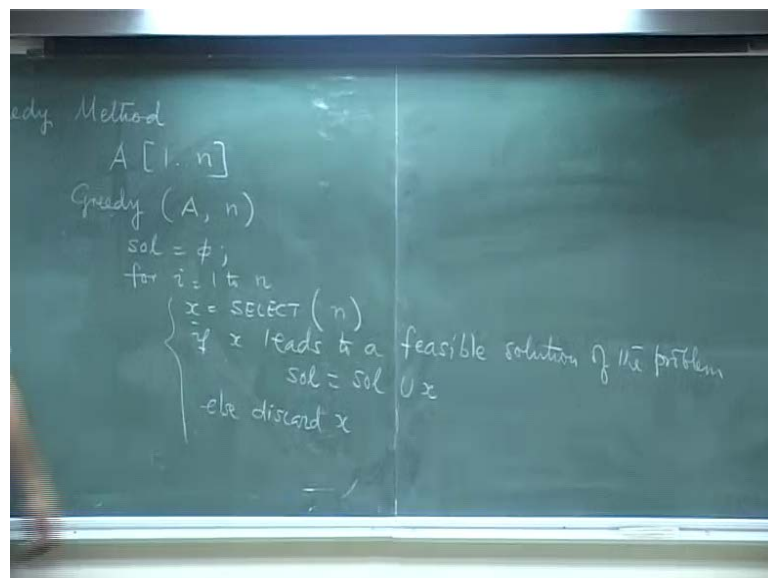 edy Method
A [1.. n]
Greedy (A, n)
sol = ϕ;
for i = 1 to n
x = SELECT (n)
if x leads to a feasible solution of the problem
sol = sol ∪ x
else discard x